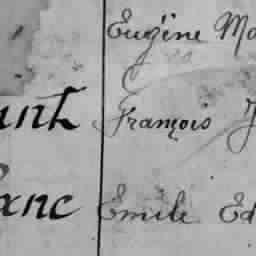 Eugène Ma
François J
Emile Ed